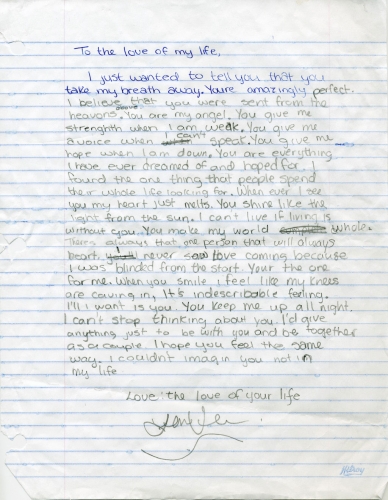 To the love of my life,
I just wanted to tell you that you
take my breath away. Youre amazingly perfect.
I believe that you were sent from the
above
heavens. You are my angel. You give me
strenghth when I am weak. You give me
a voice when I can't speak. You give me
hope when I am down. You are everything
I have ever dreamed of and hoped for. I
found the one thing that people spend
their whole life looking for. When ever I see
you my heart just melts. You shire like the
light from the sun. I can't live if living is
without you. You make my world complete whole.
Theres always that one person that will always
heart. I never saw love coming because
I was blinded from the start. Your the one
for me. When you smile i feel like my knees
are caving in, It's indescribable feeling.
I'll I want is you. You keep me up all night.
I can't stop thinking about you I'd give
anything just to be with you and be together
as a couple. I hope you feel the same
way. I couldnt imagin you not in
my life
Love: the love of your life
Hilroy